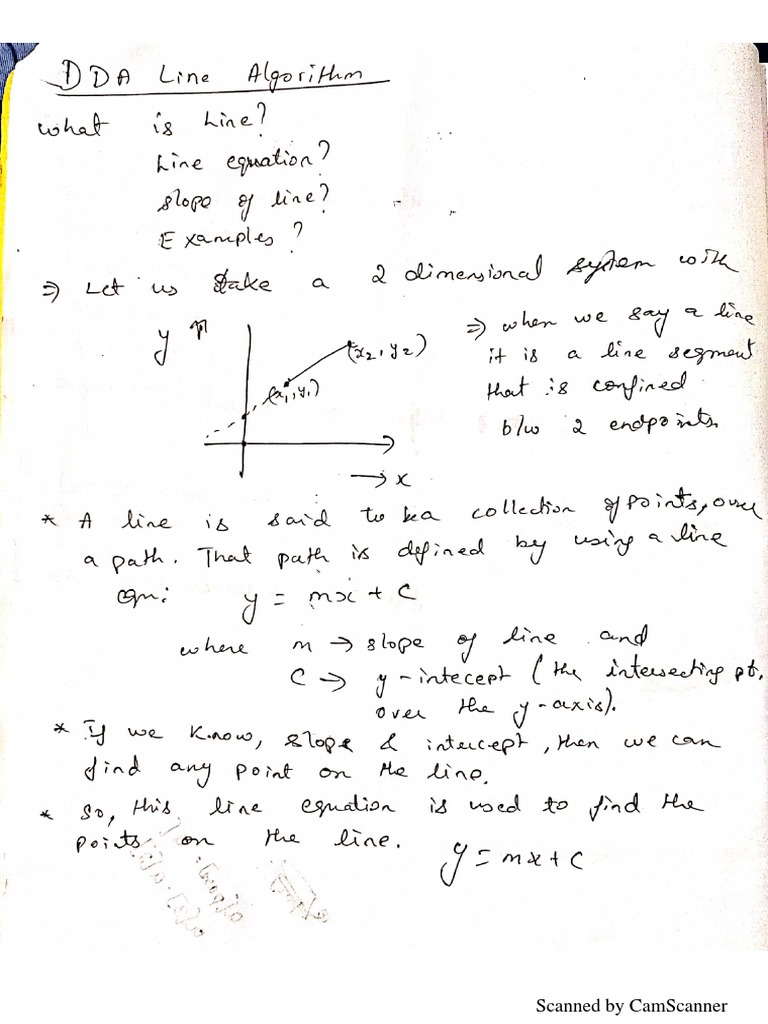 DDA Line Algorithm
what is Line?
Line equation?
slope of line?
Examples?
⇒ Let us take a 2 dimensional system with
y ↑
(x2, y2)
(x1, y1)
→ x
⇒ when we say a line
it is a line segment
that is confined
b/w 2 endpoints.
* A line is said to be a collection of points, over
a path. That path is defined by using a line
eqn: y = mx + c
where m → slope of line and
C → y-intecept (the intersecting pt.
over the y-axis).
* If we know, slope & intercept, then we can
find any point on the line.
* So, this line equation is used to find the
points on the line. y = mx + c
Scanned by CamScanner